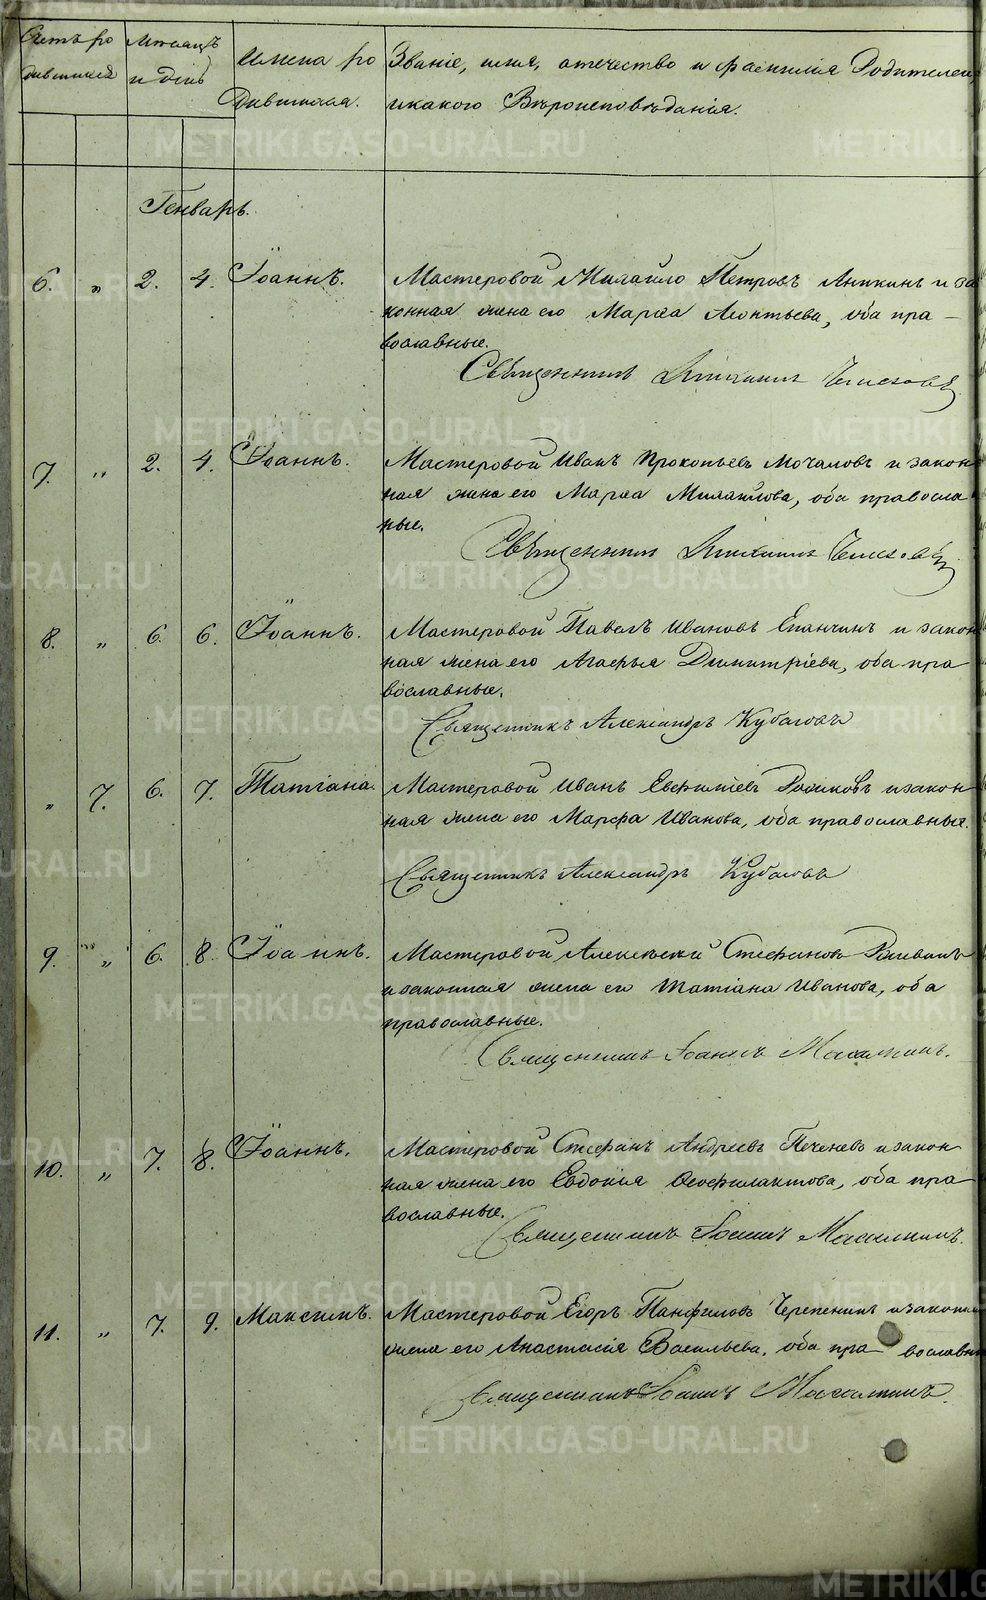 Счетъ ро
дившихся
Мѣсяцъ
и день
Имена ро
дившихся.
Званіе, имя, отечество и фамилія Родителей
и какого Вѣроисповѣданія.
METRIKI.GASO-URAL.RU
Генварь.
6. „ 2. 4. Іоаннъ. Мастеровой Михайло Петровъ Аникинъ и за
конная жена его Марѳа Леонтьева, оба пра-
вославные.
Священникъ
7. „ 2. 4. Іоаннъ. Мастеровой Иванъ Прокопьевъ Мочаловъ и закон
ная жена его Марѳа Михайлова, оба правосла
ные.
Священникъ
8. „ 6. 6. Іоаннъ. Мастеровой Павелъ Ивановъ Епанчинъ и закон
ная жена его Агафья Димитріева, оба пра
вославные.
Священникъ Александръ Кубасовъ
„ 7. 6. 7. Татіана. Мастеровой Иванъ Евфиміевъ и закон
ная жена его Марфа Иванова, оба православные.
Священникъ Александръ Кубасовъ
9. „ 6. 8. Іоаннъ. Мастеровой Алексѣй Стефановъ
и законная жена его Татіана Иванова, оба
православные.
Священникъ Іоаннъ
10. „ 7. 8. Іоаннъ. Мастеровой Стефанъ Андреевъ Печеневъ и закон
ная жена его Евдокія Феофилактова, оба пра
вославные.
Священникъ Іоаннъ
11. „ 7. 9. Максимъ. Мастеровой Егоръ Панфиловъ Черепенинъ и законн
жена его Анастасія Васильева, оба пра вославн
Священникъ Іоаннъ